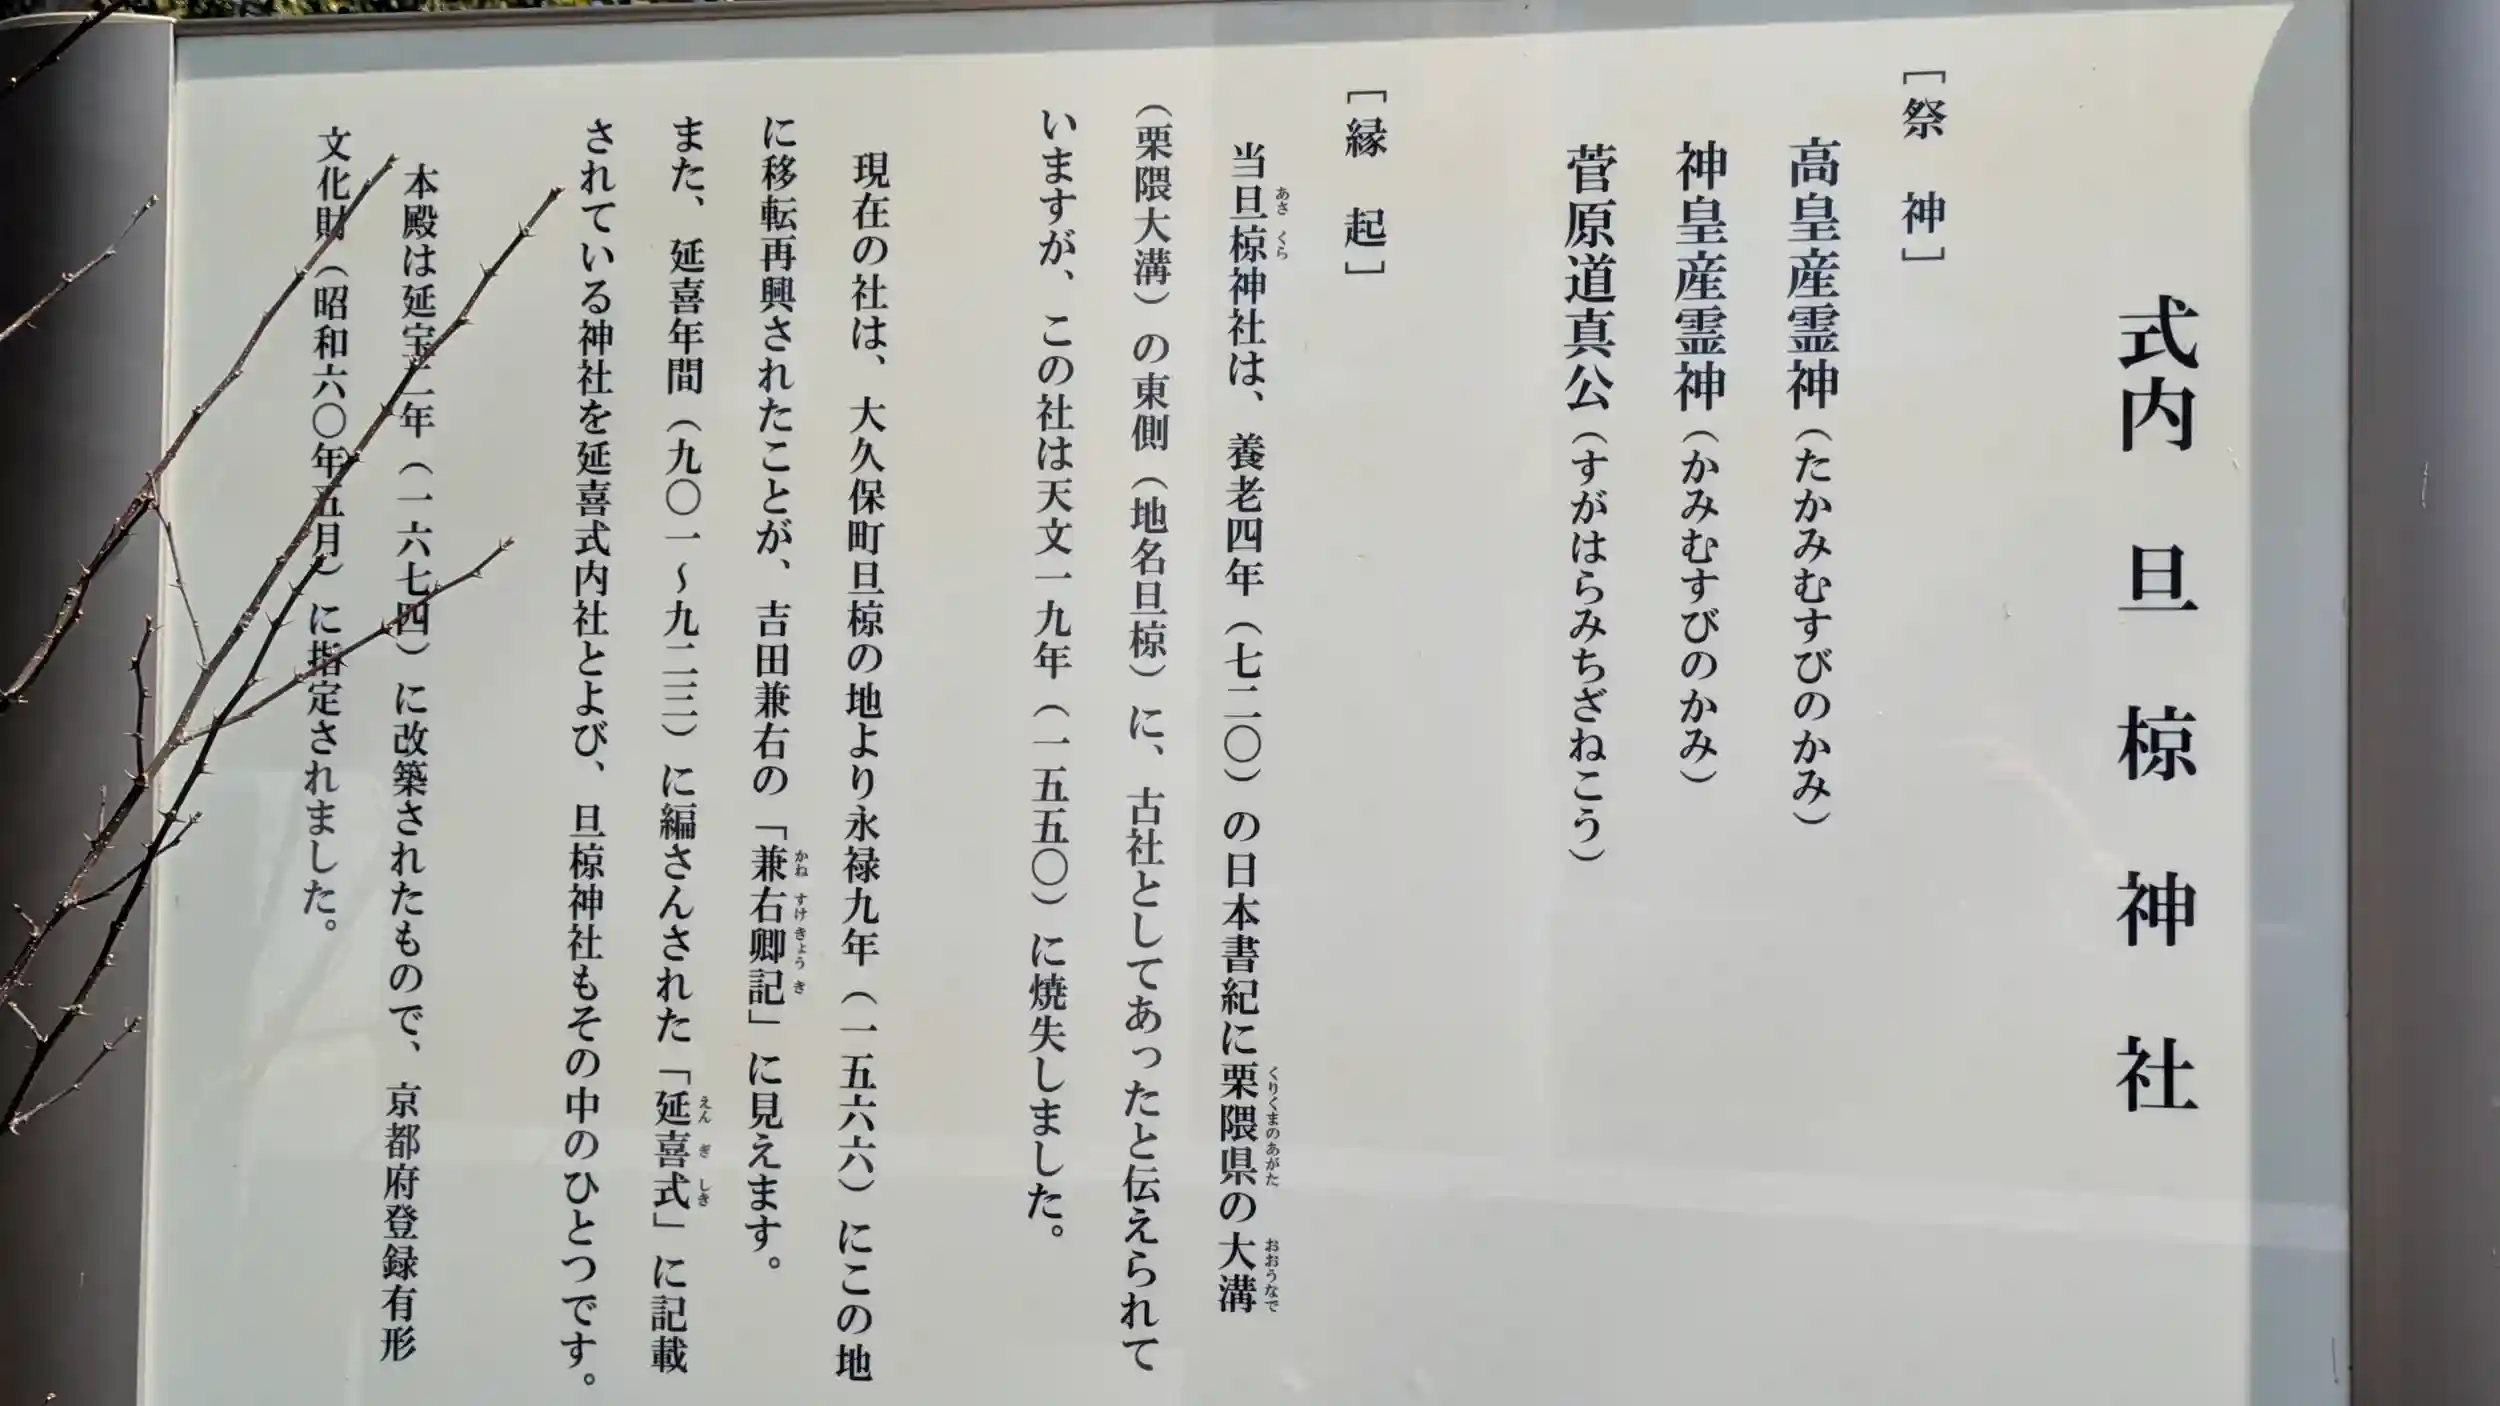 式内 旦椋神社
［祭　神］
高皇産霊神（たかみむすびのかみ）
神皇産霊神（かみむすびのかみ）
菅原道真公（すがはらみちざねこう）
［縁　起］
当旦椋神社は、養老四年（七二〇）の日本書紀に栗隈県の大溝
あさ くら
くりくまのあがた
おおうなで
（栗隈大溝）の東側（地名旦椋）に、古社としてあったと伝えられて
いますが、この社は天文一九年（一五五〇）に焼失しました。
現在の社は、大久保町旦椋の地より永禄九年（一五六六）にこの地
に移転再興されたことが、吉田兼右の「兼右卿記」に見えます。
かね すけ きょう き
また、延喜年間（九〇一～九二三）に編さんされた「延喜式」に記載
えん ぎ しき
されている神社を延喜式内社とよび、旦椋神社もその中のひとつです。
本殿は延宝二年（一六七四）に改築されたもので、京都府登録有形
文化財（昭和六〇年五月）に指定されました。